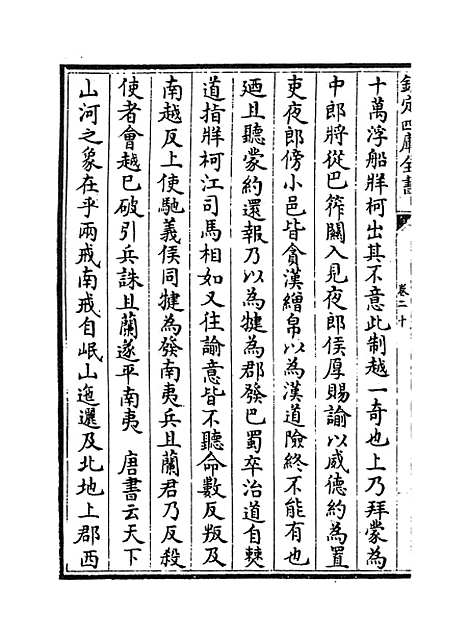 欽定四庫全書
卷二十
十萬浮船牂柯出其不意此制越一奇也上乃拜蒙為
中郎將從巴筰關入見夜郎侯厚賜諭以威德約為置
吏夜郎傍小邑皆貪漢繒帛以為漢道險終不能有也
廼且聽蒙約還報乃以為犍為郡發巴蜀卒治道自僰
道指牂柯江司馬相如又往諭意皆不聽命數反叛及
南越反上使馳義侯同犍為發南夷兵且蘭君乃反殺
使者會越已破引兵誅且蘭遂平南夷　唐書云天下
山河之象在乎兩戒南戒自岷山迤邐及北地上郡西